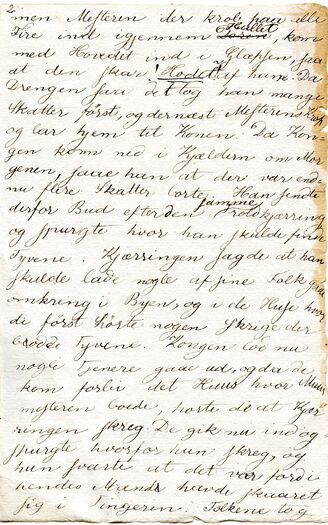 2.
men Mesteren der krob paa alle
Fire ind igjennem Hullet, kom
med Hovedet ind i Glappen, paa
at den skar Hodet af ham. Da
Drengen saa det tog han mange
Skatter først, og dernæst Mesterens Krop
og bar hjem til Konen. Da Kon-
gen kom ned i Kjældern om Mor-
genen, saae han at der var end-
nu flere Skatter borte. Han sendte
derfor Bud efter den samme Troldkjærring
og spurgte hvor han skulde finde
Tyvene. Kjærringen sagde at han
skulde lade nogle af sine Folk gaa
omkring i Byen, og i de Huse hvor
de først hørte nogen Skrige der
boede Tyvene. Kongen lod nu
nogle Tjenere gaae ud, og da de
kom forbi det Huus hvor Muur
mesteren boede, hørte de at Kjær
ringen skreg. De gik nu ind og
spurgte hvorfor hun skreg, og
hun svarte at det var fordi
hendes Mand havde skaaret
sig i Fingeren. Folkene tog